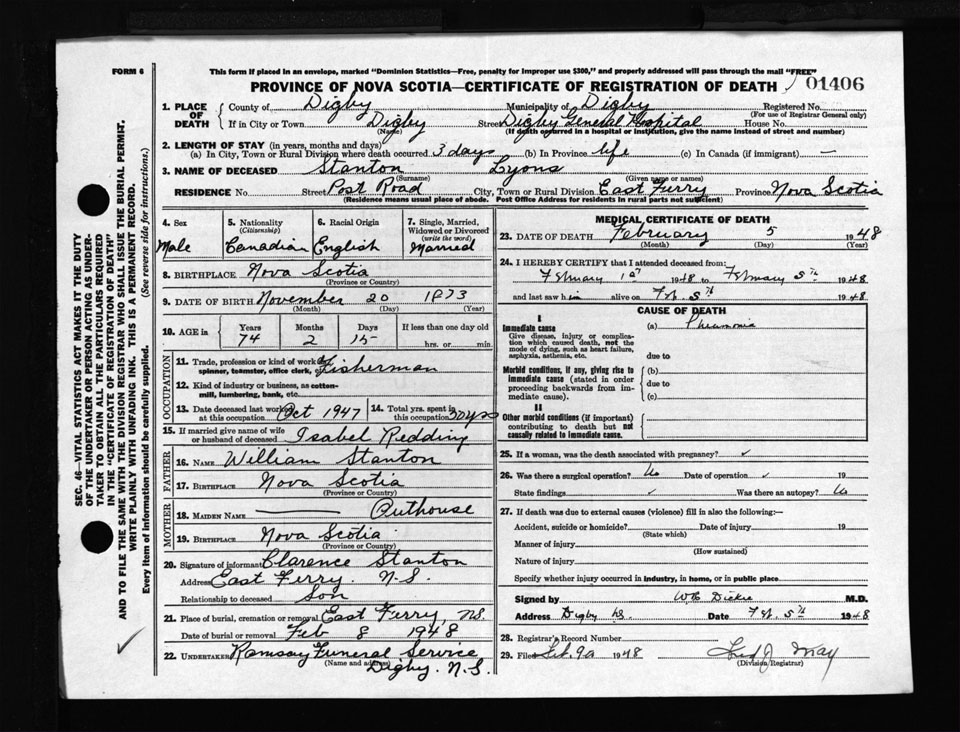 FORM 6
This form if placed in an envelope, marked "Dominion Statistics—Free, penalty for improper use $300," and properly addressed will pass through the mail "FREE"
PROVINCE OF NOVA SCOTIA—CERTIFICATE OF REGISTRATION OF DEATH 01406
1. PLACE OF DEATH County of Digby Municipality of Digby Registered No.
(For use of Registrar General only)
If in City or Town Digby Street Digby General Hospital House No.
(Name) (If death occurred in a hospital or institution, give the name instead of street and number)
2. LENGTH OF STAY (in years, months and days)
(a) In City, Town or Rural Division where death occurred 3 days (b) In Province life (c) In Canada (if immigrant) —
3. NAME OF DECEASED Stanton Lyons
(Surname) (Given name or names)
RESIDENCE No. Street Post Road City, Town or Rural Division East Ferry Province Nova Scotia
(Residence means usual place of abode. Post Office Address for residents in rural parts not sufficient)
4. Sex
Male
5. Nationality
(Citizenship)
Canadian
6. Racial Origin
English
7. Single, Married, Widowed or Divorced
(write the word)
Married
8. BIRTHPLACE Nova Scotia
(Province or Country)
9. DATE OF BIRTH November 20 1873
(Month) (Day) (Year)
10. AGE in Years Months Days If less than one day old
74 2 15 hrs. or min.
OCCUPATION
11. Trade, profession or kind of work as spinner, teamster, office clerk, Fisherman
12. Kind of industry or business, as cotton-mill, lumbering, bank, etc.
13. Date deceased last worked at this occupation Oct 1947
14. Total yrs. spent in this occupation 50 yrs
15. If married give name of wife or husband of deceased Isabel Redding
FATHER
16. NAME William Stanton
17. BIRTHPLACE Nova Scotia
(Province or Country)
MOTHER
18. MAIDEN NAME Outhouse
19. BIRTHPLACE Nova Scotia
(Province or Country)
20. Signature of informant Clarence Stanton
Address East Ferry. N.S.
Relationship to deceased Son
21. Place of burial, cremation or removal East Ferry, N.S.
Date of burial or removal Feb 8 1948
22. UNDERTAKER Ramsay Funeral Service
(Name and address) Digby. N.S.
MEDICAL CERTIFICATE OF DEATH
23. DATE OF DEATH February 5 1948
(Month) (Day) (Year)
24. I HEREBY CERTIFY that I attended deceased from:
February 1st 1948 to February 5th 1948
and last saw him alive on Feb. 5th 1948
CAUSE OF DEATH
I
Immediate cause
Give disease, injury or complication which caused death, not the mode of dying, such as heart failure, asphyxia, asthenia, etc.
(a) Pneumonia
due to
Morbid conditions, if any, giving rise to immediate cause (stated in order proceeding backwards from immediate cause).
(b)
due to
(c)
II
Other morbid conditions (if important) contributing to death but not causally related to immediate cause.
25. If a woman, was the death associated with pregnancy? ✓
26. Was there a surgical operation? No Date of operation ✓ 19
State findings ✓ Was there an autopsy? No
27. If death was due to external causes (violence) fill in also the following:—
Accident, suicide or homicide? Date of injury 19
(State which)
Manner of injury
(How sustained)
Nature of injury
Specify whether injury occurred in industry, in home, or in public place
Signed by Dickie M.D.
Address Digby NS. Date Feb. 5th 1948
28. Registrar's Record Number
29. Filed Feb. 9 1948 Fred J May
(Division Registrar)
SEC. 46—VITAL STATISTICS ACT MAKES IT THE DUTY
OF THE UNDERTAKER OR PERSON ACTING AS UNDER-
TAKER TO OBTAIN ALL THE PARTICULARS REQUIRED
IN THE "CERTIFICATE OF REGISTRATION OF DEATH"
AND TO FILE THE SAME WITH THE DIVISION REGISTRAR WHO SHALL ISSUE THE BURIAL PERMIT.
WRITE PLAINLY WITH UNFADING INK. THIS IS A PERMANENT RECORD.
Every item of information should be carefully supplied. (See reverse side for instructions.)